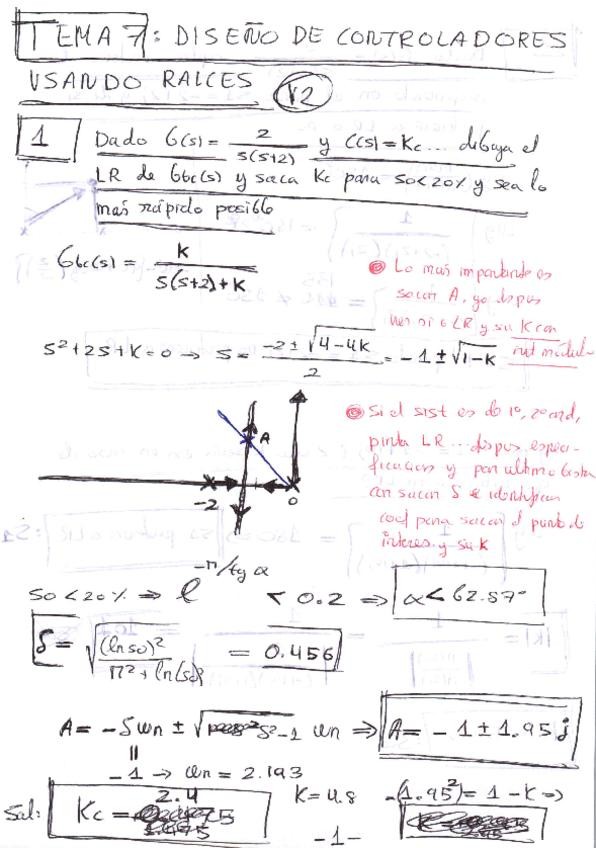 TEMA 7: DISEÑO DE CONTROLADORES
USANDO RAICES V2
1 Dado G(s) = 2/(s(s+2)) y C(s) = Kc ... dibuja el
LR de Gbc(s) y saca Kc para SO<20% y sea lo
mas rápido posibl
Gbc(s) = K/(s(s+2)+K)
Lo mas importante es
sacar A, ya dspus
LR y su K con
s²+2s+K=0 → s = (-2±√(4-4K))/2 = -1±√(1-K)
A
-2 0
Si el sist es de 1º, 2º ord,
pinta LR ... dspus especi-
ficacion y por ultimo basta
con sacar S e identifican
coef para sacar el punto de
interes y su K
SO<20% ⇒ e^(-π/tg α) < 0.2 ⇒ α<62.87°
δ = √((ln so)²/(π²+ln(so)²)) = 0.456
A = -δωn ± √(δ²-1) ωn ⇒ A = -1±1.95j
-1 → ωn = 2.193
Sol: Kc = 2.4 K=4.8 -(1.95²) = 1-K ⇒
-1-